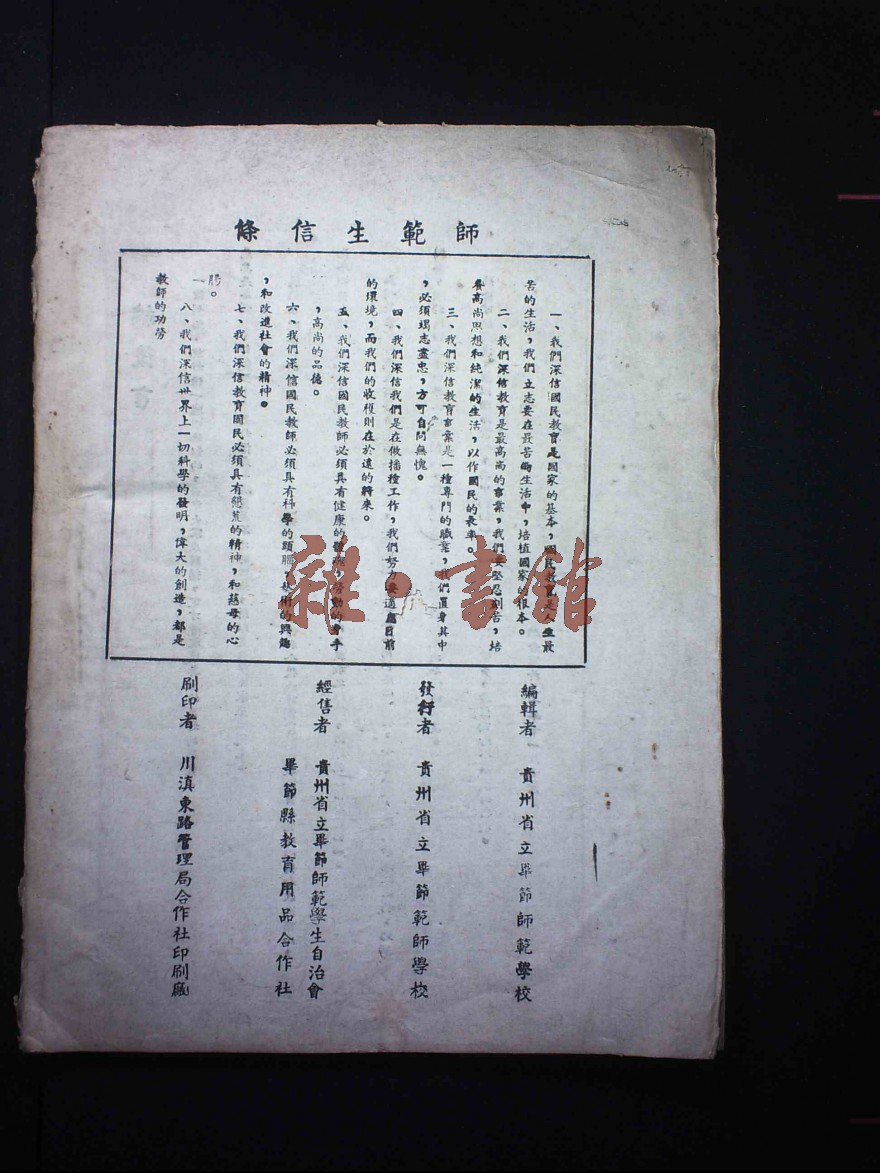 師範生信條
一、我們深信國民教育是國家的基本，國民教育是人生最
苦的生活，我們立志要在最苦的生活中，培植國家的根本。
二、我們深信教育是最高尚的事業，我們要堅忍刻苦，培
養高尚思想和純潔的生活，以作國民的表率。
三、我們深信教育事業是一種專門的職業，我們置身其中
，必須竭志盡忠，方可自問無愧。
四、我們深信我們是在做播種工作，我們努力要適應目前
的環境，而我們的收穫則在於遠的將來。
五、我們深信國民教師必須具有健康的體魄，勞動的身手
，高尚的品德。
六、我們深信國民教師必須具有科學的頭腦，藝術的興趣
，和改進社會的精神。
七、我們深信教育國民必須具有墾荒的精神，和慈母的心
腸。
八、我們深信世界上一切科學的發明，偉大的創造，都是
教師的功勞
編輯者 貴州省立畢節師範學校
發行者 貴州省立畢節範師學校
經售者 貴州省立畢節師範學生自治會
畢節縣教育用品合作社
刷印者 川滇東路管理局合作社印刷廠
雜·書館